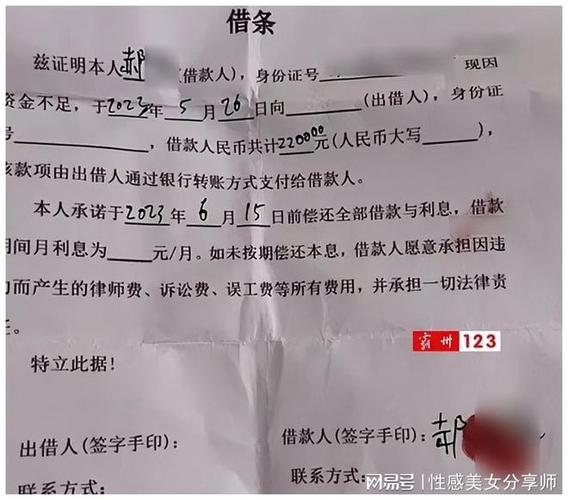 借条
兹证明本人郝 (借款人)，身份证号 现因
资金不足，于2023年5月26日向______(出借人)，身份证
号__________，借款人民币共计220000元(人民币大写____)，
该款项由出借人通过银行转账方式支付给借款人。
本人承诺于2023年6月15日前偿还全部借款与利息，借款
期间月利息为____元/月。如未按期偿还本息，借款人愿意承担因违
约而产生的律师费、诉讼费、误工费等所有费用，并承担一切法律责
任。
霸州123
特立此据！
出借人(签字手印)：
借款人(签字手印)：郝
联系方式：
联系方式：
网易号 | 性感美女分享师